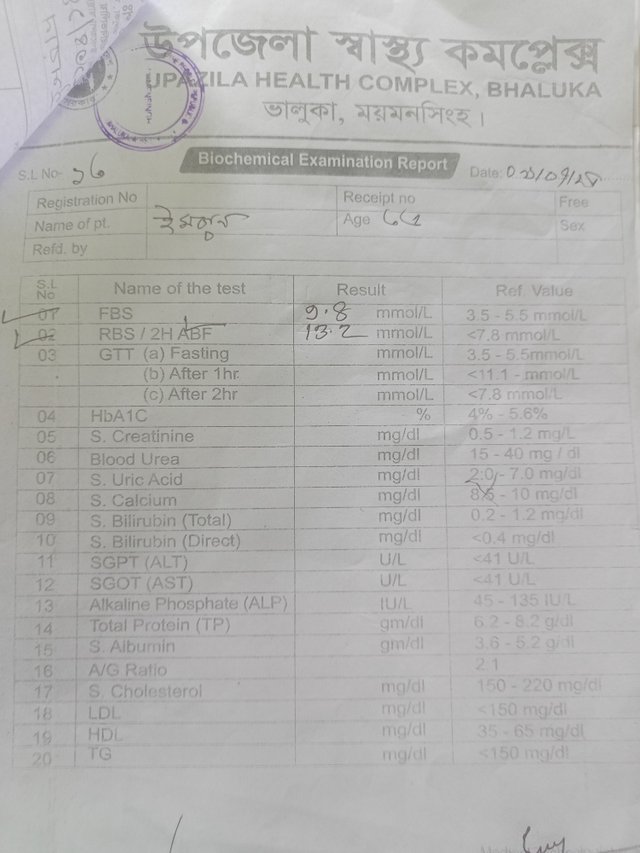 উপজেলা স্বাস্থ্য কমপ্লেক্স
UPAZILA HEALTH COMPLEX, BHALUKA
ভালুকা, ময়মনসিংহ।
Biochemical Examination Report
S.L No- ১৬ Date:
Registration No Receipt no Free
Name of pt. Age Sex
Refd. by
S.L No Name of the test Result Ref. Value
01 FBS 9.8 mmol/L 3.5 - 5.5 mmol/L
02 RBS / 2H ABF 13.2 mmol/L <7.8 mmol/L
03 GTT (a) Fasting mmol/L 3.5 - 5.5mmol/L
(b) After 1hr. mmol/L <11.1 - mmol/L
(c) After 2hr mmol/L <7.8 mmol/L
04 HbA1C % 4% - 5.6%
05 S. Creatinine mg/dl 0.5 - 1.2 mg/L
06 Blood Urea mg/dl 15 - 40 mg / dl
07 S. Uric Acid mg/dl 2.0 - 7.0 mg/dl
08 S. Calcium mg/dl - 10 mg/dl
09 S. Bilirubin (Total) mg/dl 0.2 - 1.2 mg/dl
10 S. Bilirubin (Direct) mg/dl <0.4 mg/dl
11 SGPT (ALT) U/L <41 U/L
12 SGOT (AST) U/L <41 U/L
13 Alkaline Phosphate (ALP) IU/L 45 - 135 IU/L
14 Total Protein (TP) gm/dl 6.2 - 8.2 g/dl
15 S. Albumin gm/dl 3.6 - 5.2 g/dl
16 A/G Ratio 2 1
17 S. Cholesterol mg/dl 150 - 220 mg/dl
18 LDL mg/dl <150 mg/dl
19 HDL mg/dl 35 - 65 mg/dl
20 TG mg/dl <150 mg/dl